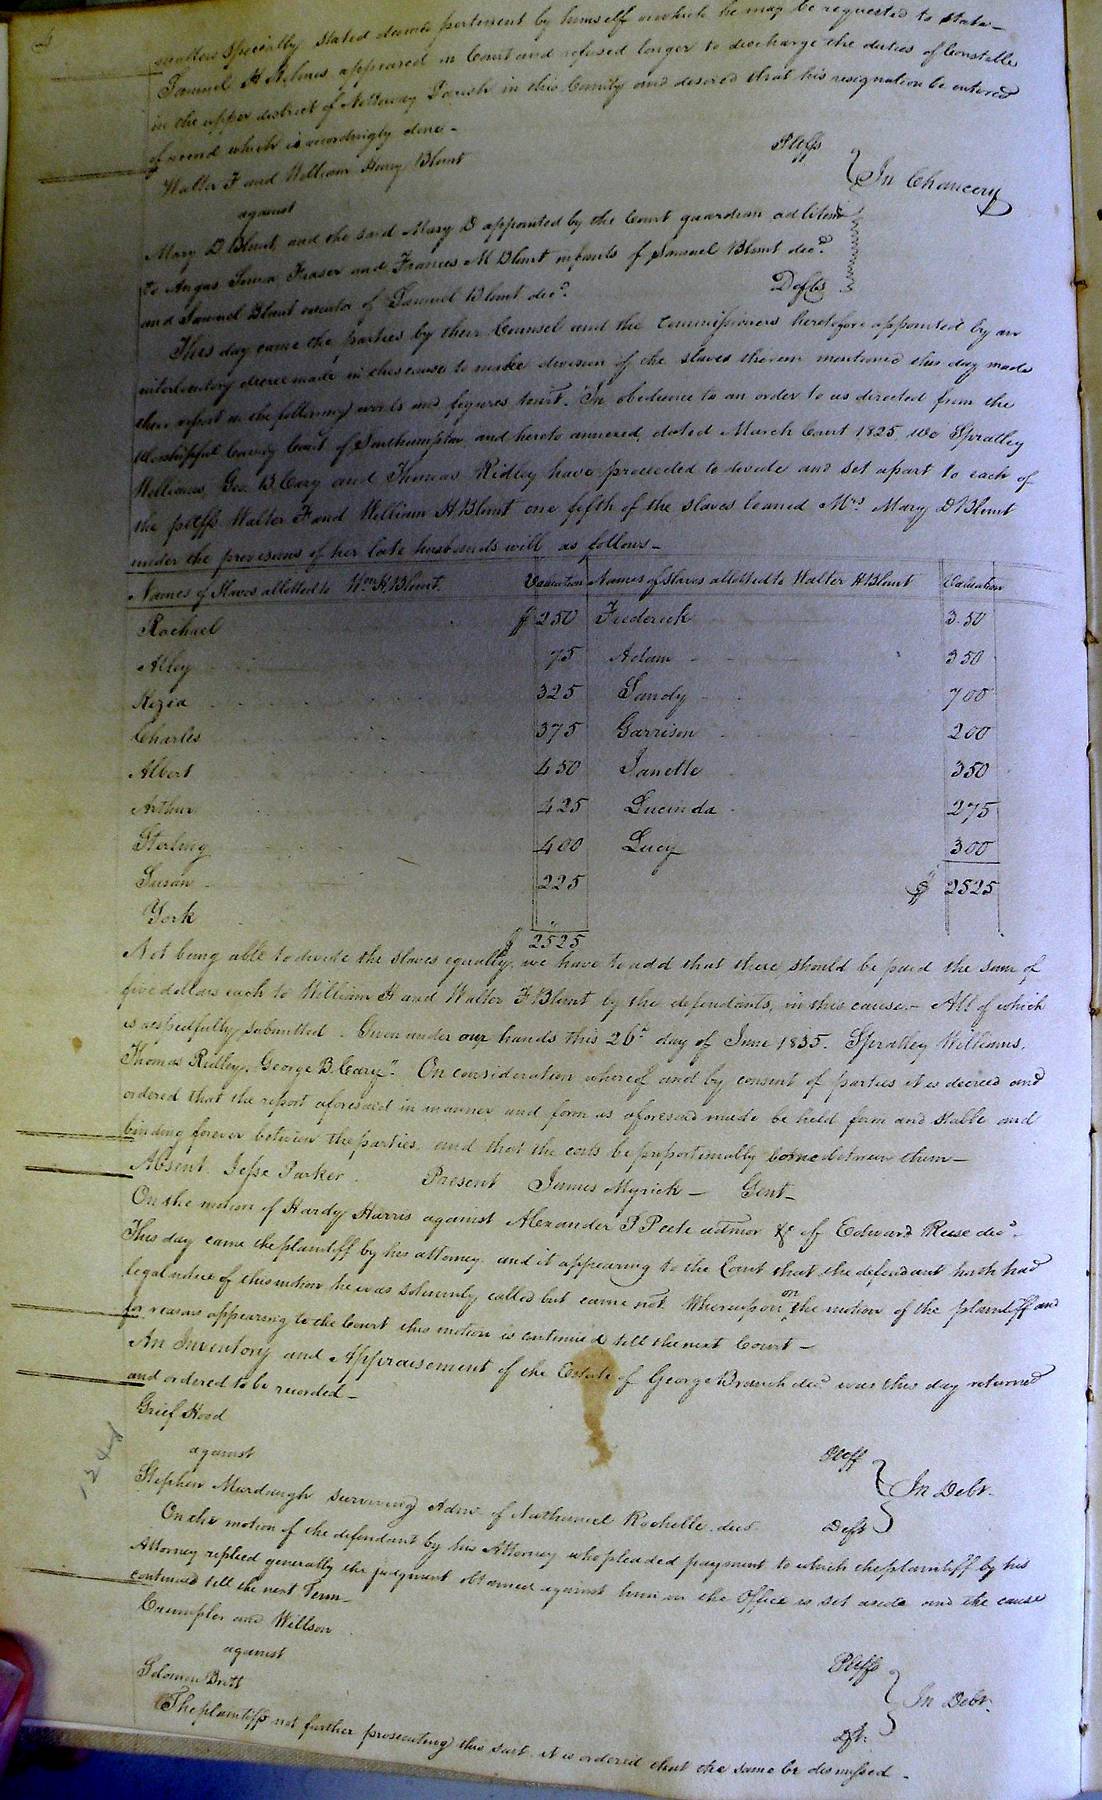 matters specially stated deemed pertinent by himself or which he may be requested to state—
Samuel H Holmes appeared in Court and refused longer to discharge the duties of Constable
in the upper district of Nottoway Parish in this County and desired that his resignation be entered
of record which is accordingly done—
Walter F and William Henry Blunt Pltffs
against In Chancery
Mary D Blunt, and the said Mary D appointed by the Court guardian ad litem
to Angus Simon Fraser and Frances M Blunt infants of Samuel Blunt decd.
and Samuel Blunt executor of Samuel Blunt decd. Defts
This day came the parties by their Counsel and the Commissioners heretofore appointed by an
interlocutory decree made in this cause to make division of the slaves therein mentioned this day made
their report in the following words and figures towit. In obedience to an order to us directed from the
Worshipful County Court of Southampton and hereto annexed, dated March Court 1825, we Spratley
Williams, Geo. B. Cary and Thomas Ridley have proceeded to divide and set apart to each of
the pltffs Walter F and William H Blunt one fifth of the slaves loaned Mrs Mary D Blunt
under the provisions of her late husbands will as follows—
Names of Slaves allotted to Wm H. Blunt. Valuation Names of Slaves allotted to Walter H Blunt Valuation
Rachael $ 250 Frederick 350
Alley 75 Adam 350
Kezia 325 Sandy 700
Charles 375 Garrison 200
Albert 450 Janette 350
Arthur 425 Lucinda 275
Sterling 400 Lucy 300
Susan 225 $ 2525
York "
$ 2525
Not being able to divide the slaves equally, we have to add that there should be paid the sum of
five dollars each to William H and Walter F Blunt by the defendants, in this cause.— All of which
is respectfully submitted. Given under our hands this 26th day of June 1835. Spratley Williams,
Thomas Ridley, George B. Cary." On consideration whereof and by consent of parties it is decreed and
ordered that the report aforesaid in manner and form as aforesaid made be held firm and stable and
binding forever between the parties, and that the costs be proportionably borne between them—
Absent Jesse Parker. Present James Myrick— Gent—
On the motion of Hardy Harris against Alexander P Peete admor &c of Edward Reese decd.
This day came the plaintiff by his attorney and it appearing to the Court that the defendant hath had
legal notice of this motion he was solemnly called but came not. Whereupon on the motion of the plaintiff and
for reasons appearing to the Court this motion is continued till the next Court—
An Inventory and Appraisement of the Estate of George Branch decd was this day returned
and ordered to be recorded—
Grief Hood Pltff
against In Debt.
Stephen Murdaugh surviving Admr of Nathaniel Rochelle decd. Deft
On the motion of the defendant by his Attorney who pleaded payment to which the plaintiff by his
Attorney replied generally the judgment obtained against him in the Office is set aside and the cause
continued till the next Term—
Crumpler and Willson Pltffs
against In Debt.
Solomon Britt Dft.
The plaintiffs not further prosecuting this suit it is ordered that the same be dismissed—